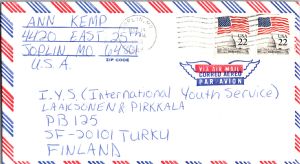 ANN KEMP
4420 EAST 25
JOPLIN, MO 64801
U.S.A
ZIP CODE
USA 22 USA 22
VIA AIR MAIL
CORREO AEREO
PAR AVION
I.Y.S (International Youth Service)
LAAKSONEN & PIRKKALA
PB 125
SF-20101 TURKU
FINLAND